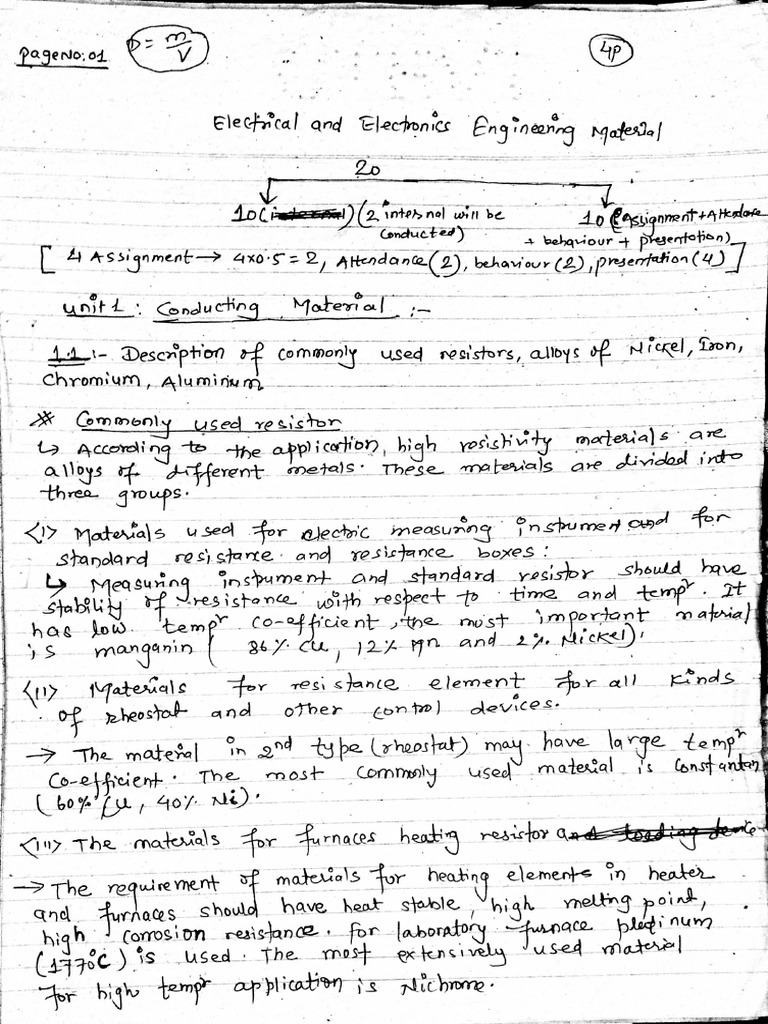 Page No: 01
D = m/V
4P
Electrical and Electronics Engineering Material
20
10 (internal) (2 internal will be conducted)
10 (Assignment + Attendance + behaviour + presentation)
[4 Assignment → 4x0.5 = 2, Attendance (2), behaviour (2), presentation (4)]
Unit 1: Conducting Material :-
1.1 :- Description of commonly used resistors, alloys of Nickel, Iron,
Chromium, Aluminium
* Commonly used resistor
↳ According to the application, high resistivity materials are
alloys of different metals. These materials are divided into
three groups.
<i> Materials used for electric measuring instrument and for
standard resistance and resistance boxes:
↳ Measuring instrument and standard resistor should have
stability of resistance with respect to time and tempr. It
has low tempr co-efficient, the most important material
is manganin ( 86% Cu, 12% Mn and 2% Nickel).
<ii> Materials for resistance element for all kinds
of rheostat and other control devices.
→ The material in 2nd type (rheostat) may have large tempr
co-efficient. The most commonly used material is Constantan
(60% Cu, 40% Ni).
<iii> The materials for furnaces heating resistor and loading device
→ The requirement of materials for heating elements in heater
and furnaces should have heat stable, high melting point,
high corrosion resistance. for laboratory furnace platinum
(1770°C) is used. The most extensively used material
for high tempr application is Nichrome.